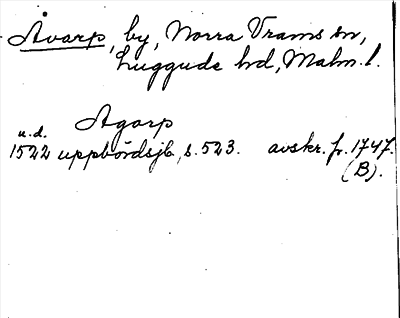 Åvarp, by, Norra Vrams sn,
Luggude hd, Malm. l.
Agarp
u.d.
1522 uppbördsjb, s. 523. avskr. fr. 1747.
(B).